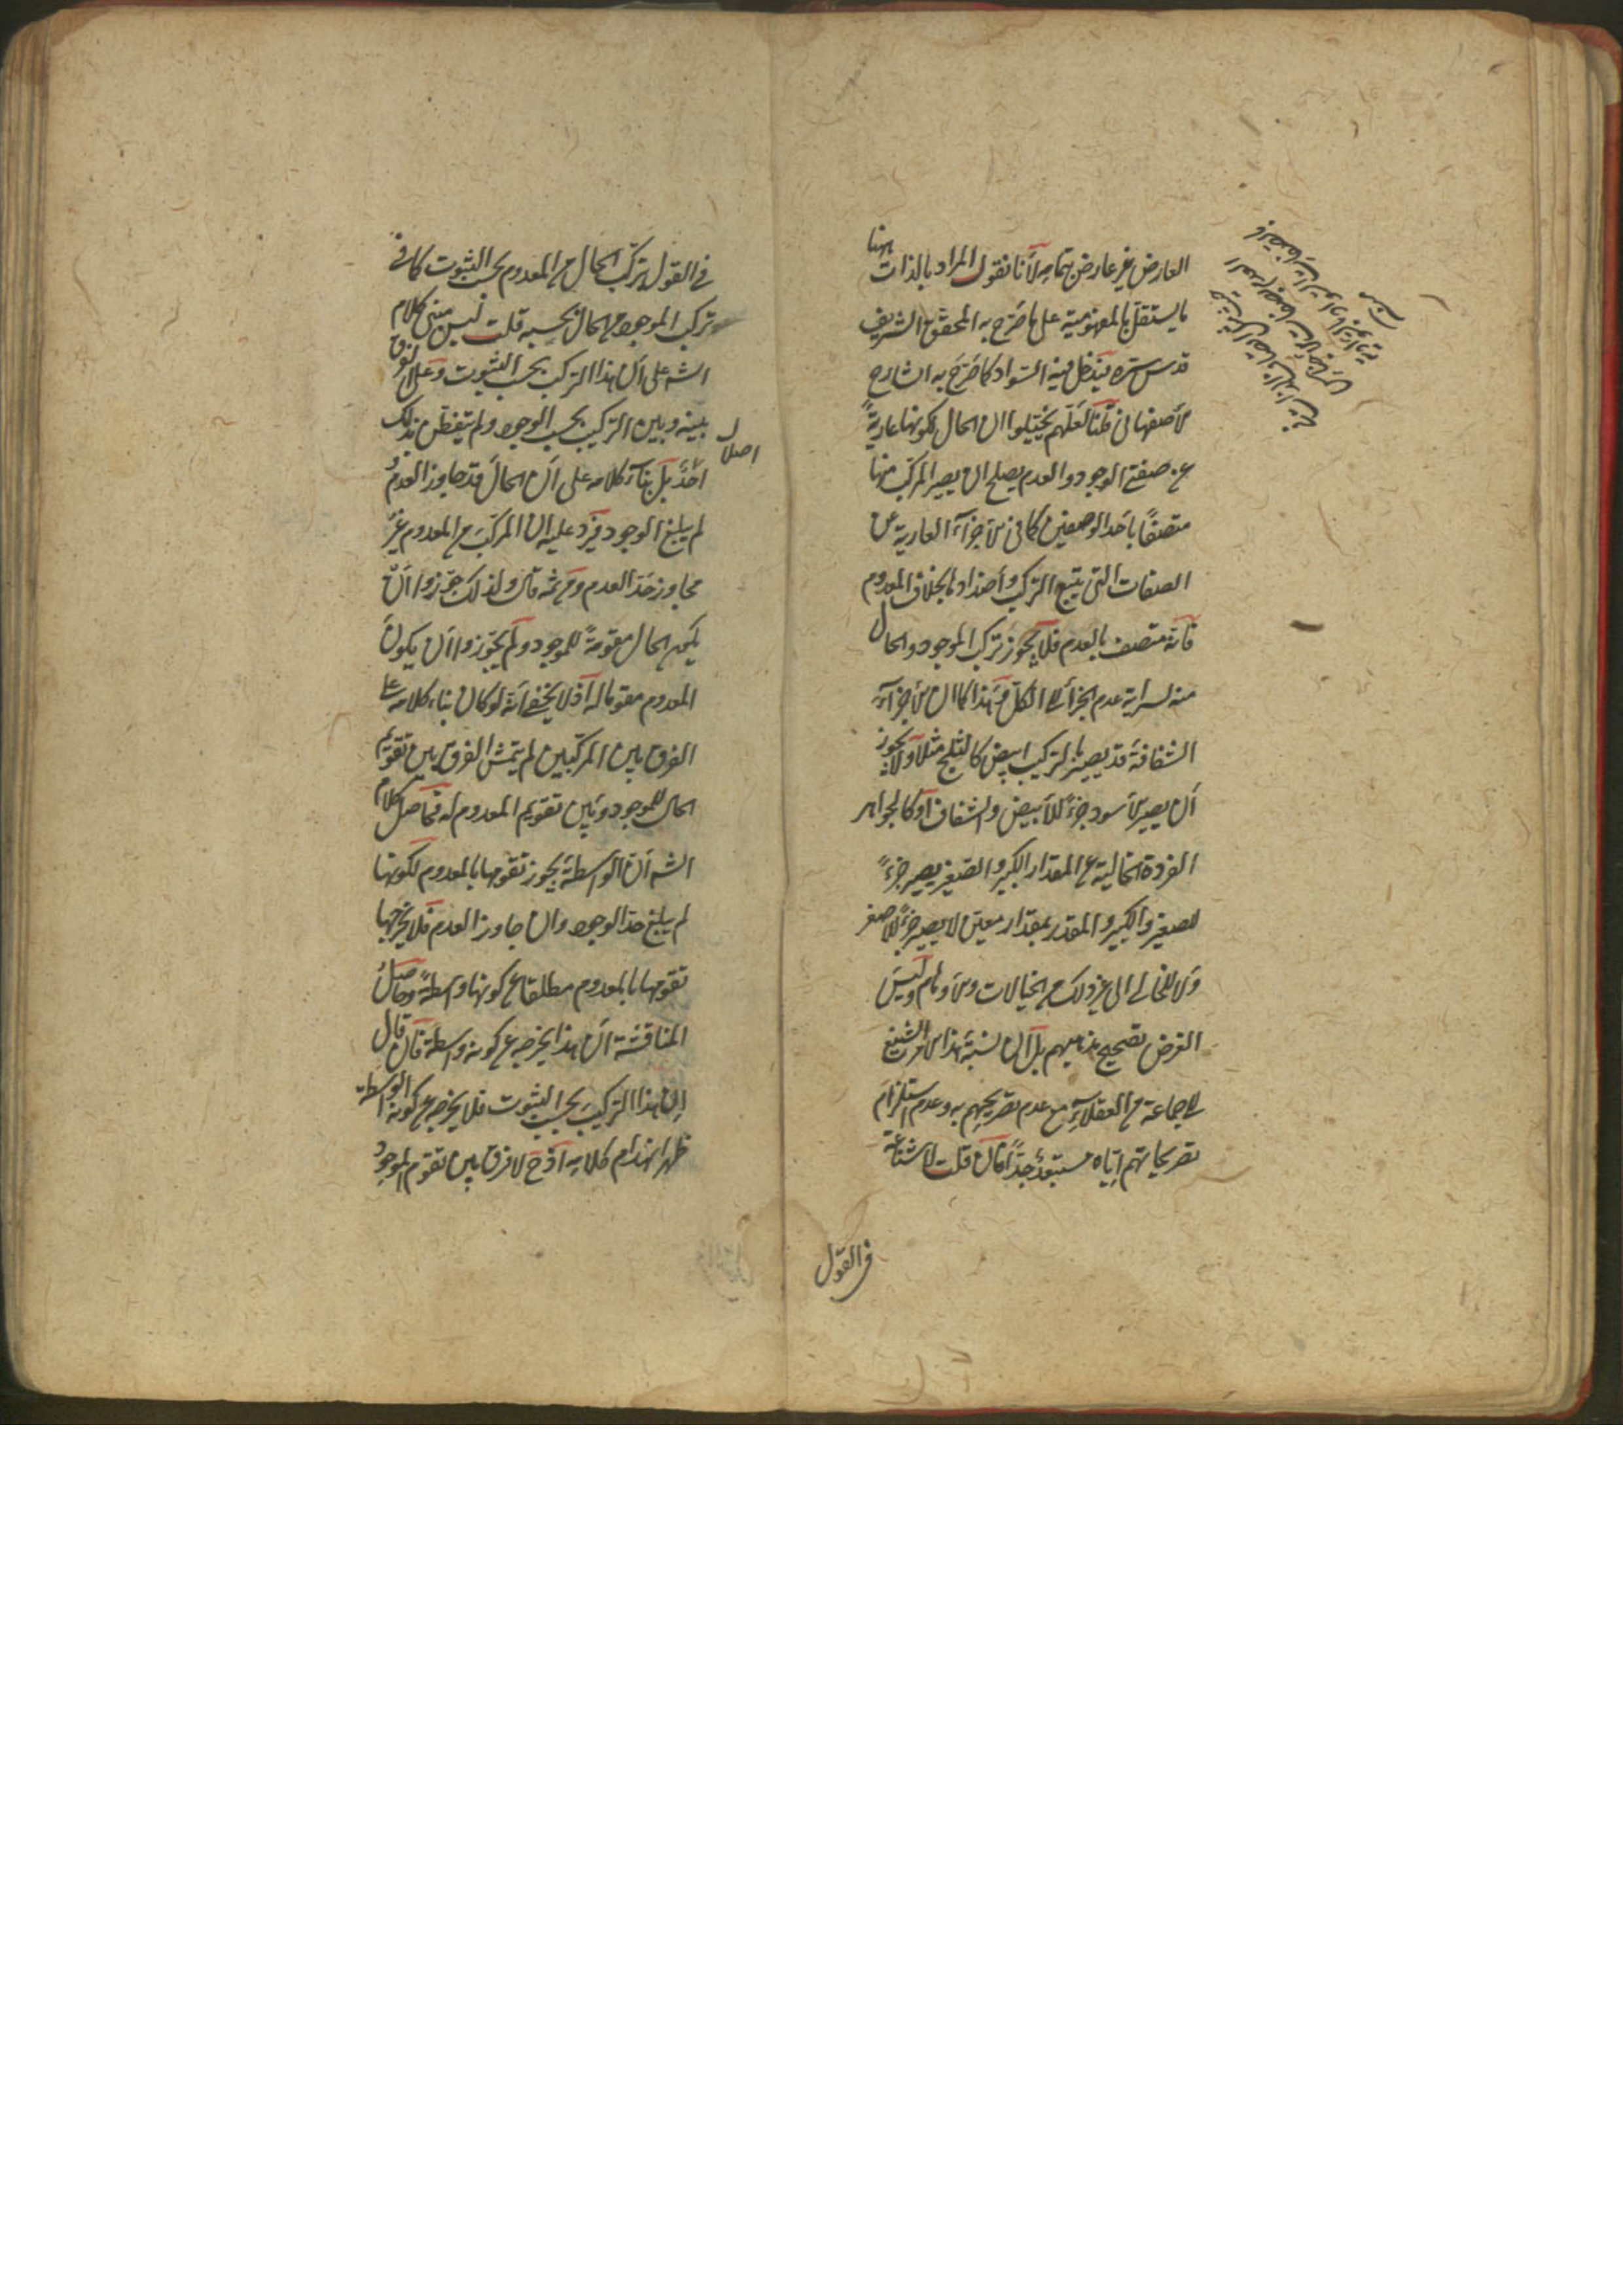 العارض غير عارض بتمامه لأنا نقول المراد بالذات ههنا
ما يستقل بالمفهومية على ما صرح به المحقق الشريف
قدس سره فيدخل فيه السواد كما صرح به الشارح
الاصفهاني قلنا لعلهم يخيلوا ان الحال لكونها عارية
عن صفتي الوجود والعدم يصلح ان يصير المركب منها
متصفا باحد الوصفين كما في الاجزاء العارية عن
الصفات التي يتبع التركيب واضدادها بخلاف المعدوم
فانه متصف بالعدم فلا يجوز تركب الموجود والحال
منه لسراية عدم الجزء الى الكل وهذا كما ان الاجزاء
الشفافة قد يصير بالتركيب ابيض كالثلج مثلا ولا يجوز
أن يصير الاسود جزءا للابيض والشفاف أو كالجواهر
الفردة الخالية عن المقدار الكبير والصغير يصير جزءا
للصغير والكبير والمقدر بمقدار معين لا يصير جزءا للاصغر
ولا للخالي الى غير ذلك من الخيالات والاوهام وليس
الغرض تصحيح مذهبهم بل ان نسبة هذا الامر الشنيع
الى جماعة من العقلاء مع عدم تصريحهم به وعدم استلزام
تصريحاتهم اياه مستبعد جدا قال قلت لا شناعة
في القول
في القول بتركب الحال من المعدوم بحسب الثبوت كما في
تركب الموجود من الحال بحسبه قلت ليس مبنى كلام
الشه على ان هذا التركب بحسب الثبوت وعلى الفرق
بينه وبين التركيب بحسب الوجود ولم يتفطن بذلك
اصلا
احد بل بناء كلامه على ان الحال قد جاوز العدم و
لم يبلغ الوجود فيرد عليه ان المركب من المعدوم غير
مجاوز حد العدم ومن ثمه قال ولذلك جوزوا ان
يكون الحال مقومة للموجود ولم يجوزوا ان يكون
المعدوم مقوما له اذ لا يخفى انه لو كان بناء كلامه على
الفرق بين المركبين لم يتمش الفرق بين تقويم
الحال للموجود وبين تقويم المعدوم له فحاصل كلام
الشه ان الواسطة يجوز تقومها بالمعدوم لكونها
لم يبلغ حد الوجود وان جاوز العدم فلا يخرجها
تقومها بالمعدوم مطلقا عن كونها واسطة وحاصل
المناقشة ان هذا يخرجه عن كونه واسطة فان قال
ان هذا التركيب بحسب الثبوت فلا يخرجه عن كونه الواسطة
ظهر انهدام كلامه اذ ح لا فرق بين تقوم الموجود